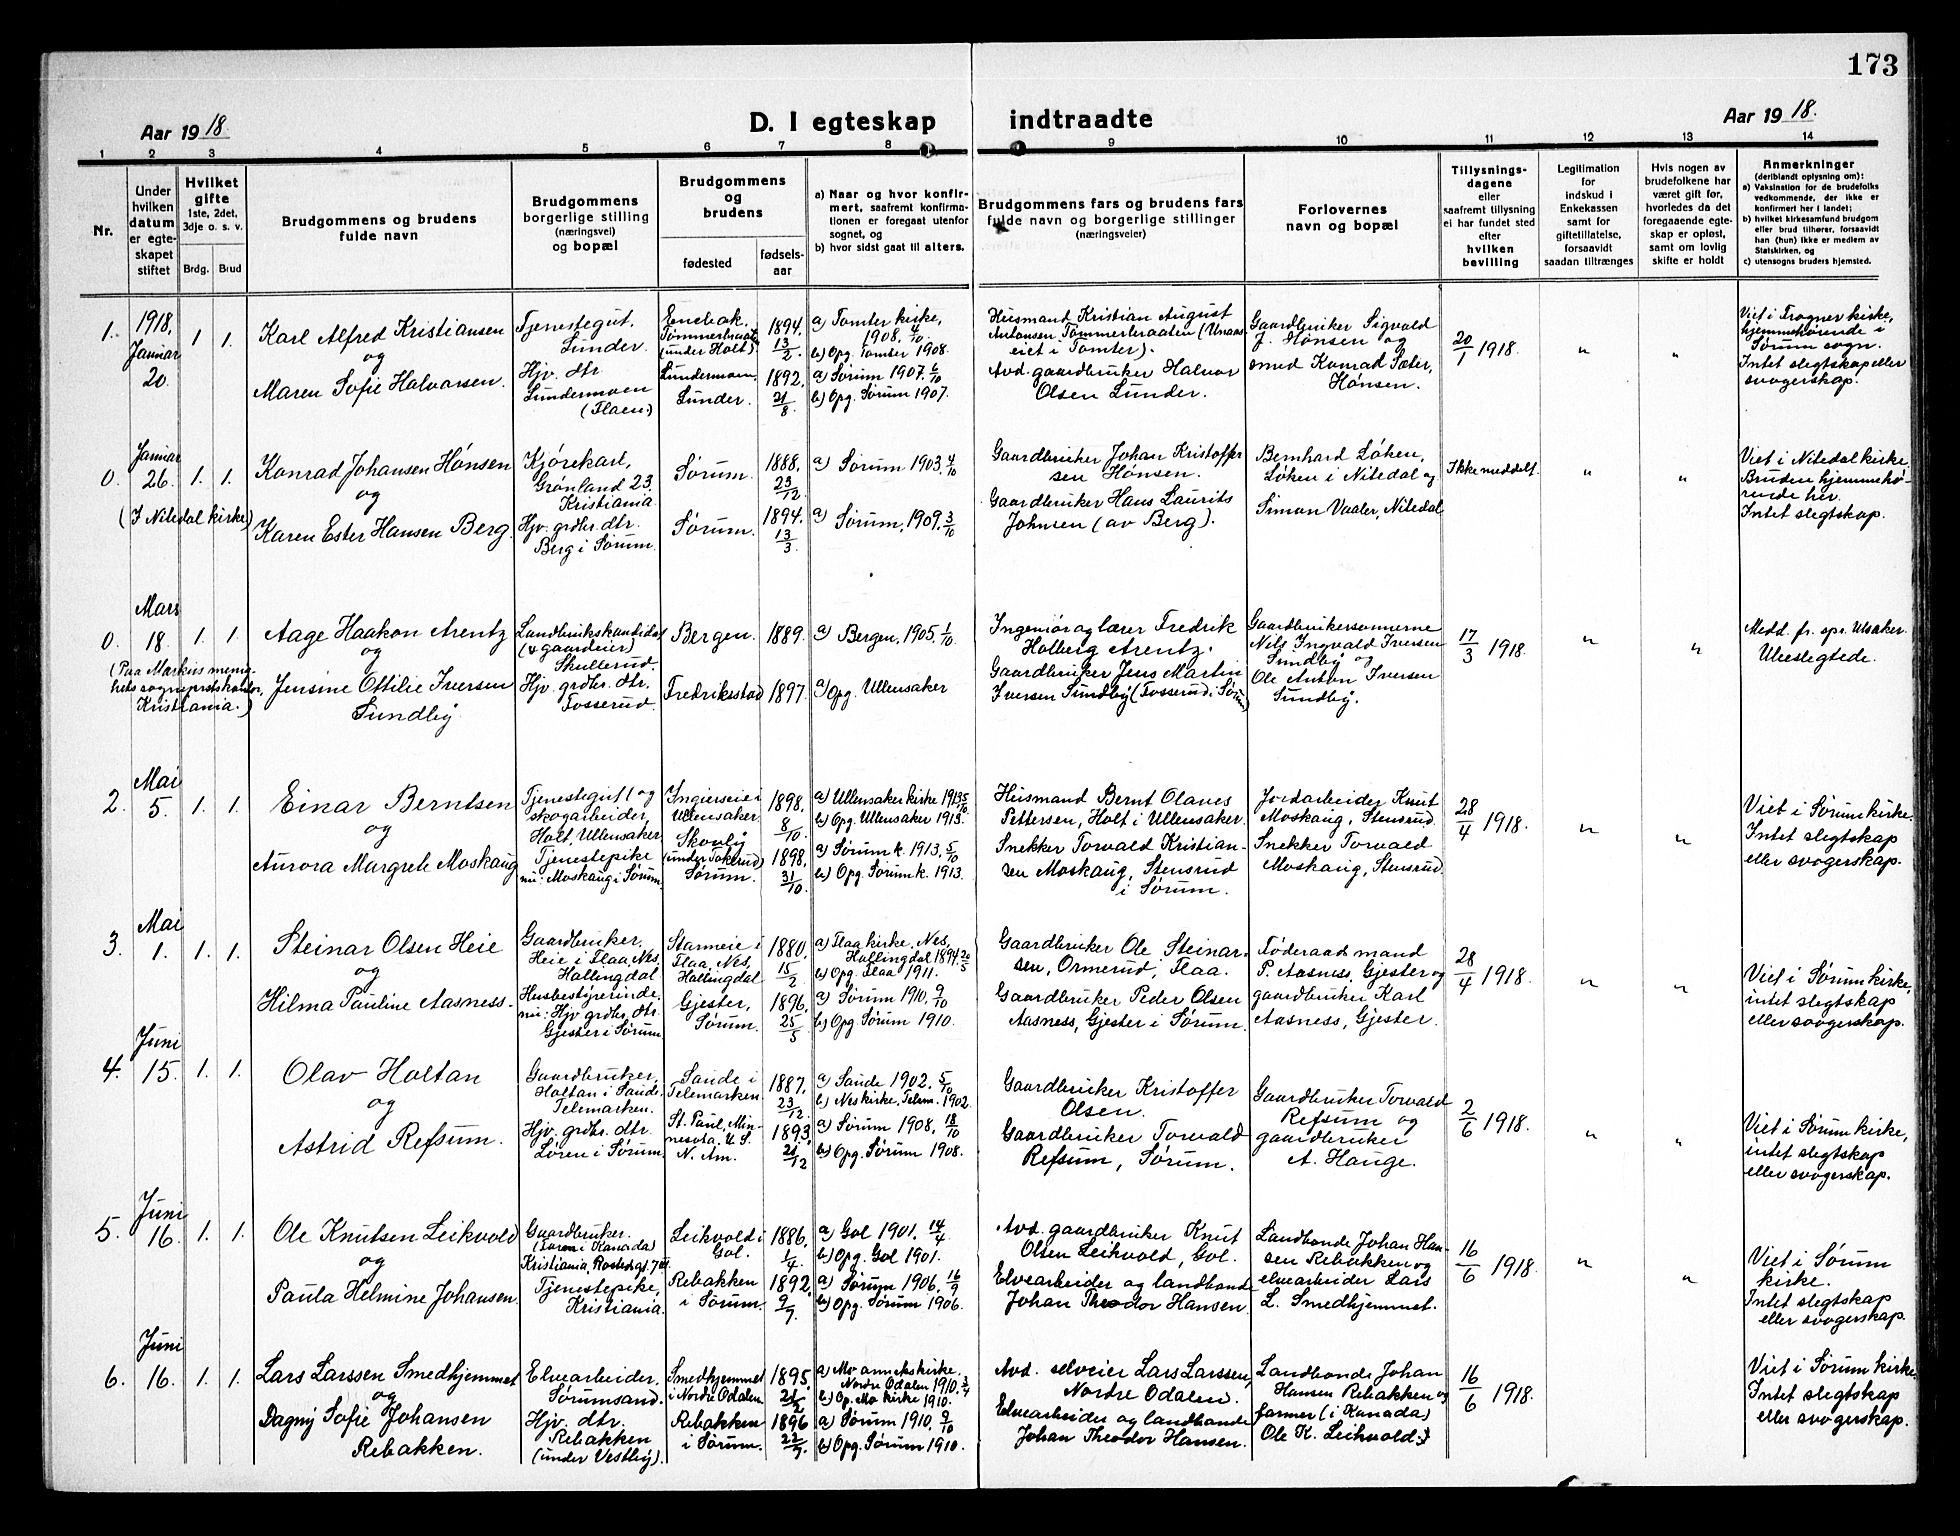 173
Aar 1918.
D. I egteskap indtraadte
Aar 1918.
1 2 3 4 5 6 7 8 9 10 11 12 13 14
Nr.
Under hvilken datum er egteskapet stiftet
Hvilket gifte
1ste, 2det, 3dje o. s. v.
Brdg. Brud
Brudgommens og brudens fulde navn
Brudgommens borgerlige stilling (næringsvei) og bopæl
Brudgommens og brudens
fødested
fødselsaar
a) Naar og hvor konfirmert, saafremt konfirmationen er foregaat utenfor sognet, og
b) hvor sidst gaat til alters.
Brudgommens fars og brudens fars fulde navn og borgerlige stillinger (næringsveier)
Forlovernes navn og bopæl
Tillysningsdagene eller saafremt tillysning ei har fundet sted efter hvilken bevilling
Legitimation for indskud i Enkekassen samt for giftetillatelse, forsaavidt saadan tiltrænges
Hvis nogen av brudefolkene har været gift før, hvorledes da det foregaaende egteskap er opløst, samt om lovlig skifte er holdt
Anmerkninger
(deriblandt oplysning om):
a) Vaksination for de brudefolks vedkommende, der ikke er konfirmert her i landet;
b) hvilket kirkesamfund brudgom eller brud tilhører, forsaavidt han (hun) ikke er medlem av Statskirken, og
c) utensogns bruders hjemsted.
1.
1918,
Januar
20.
1 1
Karl Alfred Kristiansen
og
Maren Sofie Halvorsen.
Tjenestegut.
Lunder.
Hjv. dtr.
Lundermoen
(Flaen)
Enebak.
Tømmerbraaten
(under Holt).
Lundermoen,
Lunder.
1894.
13/2.
1892.
21/8.
a) Tomter kirke,
1908. 4/10.
b) Opg. Tomter 1908.
a) Sørum 1907. 6/10
b) Opg. Sørum 1907.
Husmand Kristian August
Antonsen Tømmerbraaten (Unaas
eiet i Tomter).
Avd. gaardbruker Halvor
Olsen Lunder.
Gaardbruker Sigvald
J. Hønsen og
smed Konrad Sæter,
Hønsen.
20/1 1918.
"
"
Viet i Frogner kirke,
hjemmehørende i
Sørum sogn.
Intet slegtskap eller
svogerskap.
0.
Januar
26.
(I Nitedal kirke)
1. 1.
Konrad Johansen Hønsen
og
Karen Ester Hansen Berg.
Kjørekarl,
Grønland 23.
Kristiania.
Hjv. grdbr. dtr.
Berg i Sørum.
Sørum
Sørum.
1888.
23/12
1894.
13/3
a) Sørum 1903. 4/10
a) Sørum, 1909. 3/10
Gaardbruker Johan Kristoffer
sen Hønsen.
Gaardbruker Hans Laurits
Johnsen (av Berg).
Bernhard Løken,
Løken i Nitedal og
Simon Vaaler, Nitedal
Ikke meddelt.
"
"
Viet i Nitedal kirke,
Bruden hjemmehø-
rende her.
Intet slegtskap.
0.
Mars
18.
(Paa Markus menig-
hets sogneprestskontor,
Kristiania.)
1. 1.
Aage Haakon Arentz
og
Jensine Ottilie Iversen
Sundby
Landbrukskandidat
(& gaardeier)
Skullerud.
Hjv. grdbr. dtr.
Fosserud.
Bergen.
Fredriksstad
1889.
1897.
a) Bergen, 1905. 1/10
a) Opg. Ullensaker
Ingeniør og lærer Fredrik
Holberg Arentz.
Gaardbruker Jens Martin
Iversen Sundby (Fosserud i Sørum)
Gaardbrukersønnerne
Nils Ingvald Iversen
Sundby og
Ole Anton Iversen
Sundby.
17/3 1918.
"
"
Medd. fr. spr. Ulsaker.
Ubeslegtede.
2.
Mai
5.
1. 1.
Einar Berntsen
og
Aurora Margrete Moskaug
Tjenestegut og
skogarbeider,
Holt, Ullensaker
Tjenestepike
nu: Moskaug i Sørum.
Ingierseie i
Ullensaker.
Skovly
(under Tokerud)
Sørum.
1898.
8/10.
1898.
31/10
a) Ullensaker kirke 1913 5/10
b) Opg. Ullensaker 1913.
a) Sørum k. 1913. 5/10
b) Opg. Sørum k. 1913.
Husmand Bernt Olaves
Pettersen, Holt i Ullensaker.
Snekker Torvald Kristian-
sen Moskaug, Stensrud
i Sørum.
Jordarbeider Knut
Moskaug, Stensrud.
Snekker Torvald
Moskaug, Stensrud.
28/4 1918.
"
"
Viet i Sørum kirke.
Intet slegtskap
eller svogerskap.
3.
Mai
1.
1. 1.
Steinar Olsen Heie
og
Hilma Pauline Aasness.
Gaardbruker,
Heie i Flaa, Nes,
Hallingdal
Husbestyrerinde,
nu: Hjv grdbr. dtr.
Gjester i Sørum.
Starneie i
Flaa, Nes,
Hallingdal
Gjester,
Sørum.
1880.
15/2
1896.
25/5
a) Flaa kirke. Nes,
Hallingdal 1894. 20/5
b) Opg. Flaa 1911.
a) Sørum 1910. 9/10
b) Opg Sørum 1910.
Gaardbruker Ole Steinar-
sen, Ormerud, Flaa.
Gaardbruker Peder Olsen
Aasness, Gjester i Sørum.
Føderaadsmand
P. Aasness, Gjester og
gaardbruker Karl
Aasness, Gjester.
28/4 1918.
"
"
Viet i Sørum kirke,
intet slegtskap
eller svogerskap.
4.
Juni
15.
1. 1.
Olav Holtan
og
Astrid Refsum.
Gaardbruker,
Holtan i Saude
Telemarken.
Hjv. grdbr. dtr.
Løren i Sørum.
Saude i
Telemarken.
St. Paul, Min-
nesota, U. S.
N. Am.
1887.
23/12.
1893.
21/12
a) Saude 1902. 5/10
b) Nes kirke, Telem. 1902.
a) Sørum 1908. 18/10
b) Opg. Sørum 1908.
Gaardbruker Kristoffer
Olsen.
Gaardbruker Torvald
Refsum, Sørum.
Gaardbruker Torvald
Refsum og
gaardbruker
A. Hauge.
2/6 1918.
"
"
Viet i Sørum kirke,
intet slegtskap
eller svogerskap.
5.
Juni
16.
1. 1.
Ole Knutsen Leikvold
og
Paula Helmine Johansen.
Gaardbruker.
(Farm i Kanada)
Kristiania, Rostedsgt. 7
Tjenestepike,
Kristiania.
Leikvold i
Gol.
Rebakken
i Sørum.
1886.
1/4
1892.
9/7.
a) Gol 1901. 14/4
b) Opg. Gol 1901.
a) Sørum 1906. 16/9
b) Opg. Sørum 1906.
Avd. gaardbruker Knut
Olsen Leikvold, Gol.
Elvearbeider og landbonde
Johan Theodor Hansen.
Landbonde Johan Han-
sen Rebakken og
elvearbeider Lars
L. Smedhjemmet.
16/6 1918.
"
"
Viet i Sørum
kirke.
Intet slegtskap
eller svogerskap.
6.
Juni
16.
1. 1.
Lars Larssen Smedhjemmet
og
Dagny Sofie Johansen
Rebakken.
Elvearbeider.
Sørumsand.
Hjv. dtr.
Rebakken
(under Vestby).
Smedhjemmet
i Nordre Odalen.
Rebakken
i Sørum.
1895.
21/2
1896
22/9.
a) Mo annekskirke.
Nordre Odalen 1910. 3/4
b) Op. Mo kirke 1910.
a) Sørum 1910. 9/10
b) Opg. Sørum 1910.
Avd. selveier Lars Larssen,
Nordre Odalen.
Elvearbeider og landbonde
Johan Theodor Hansen.
Landbonde Johan
Hansen Rebakken og
farmer (i Kanada)
Ole K. Leikvold.
16/6 1918.
Viet i Sørum kirke
Intet slegtskap
eller svogerskap.